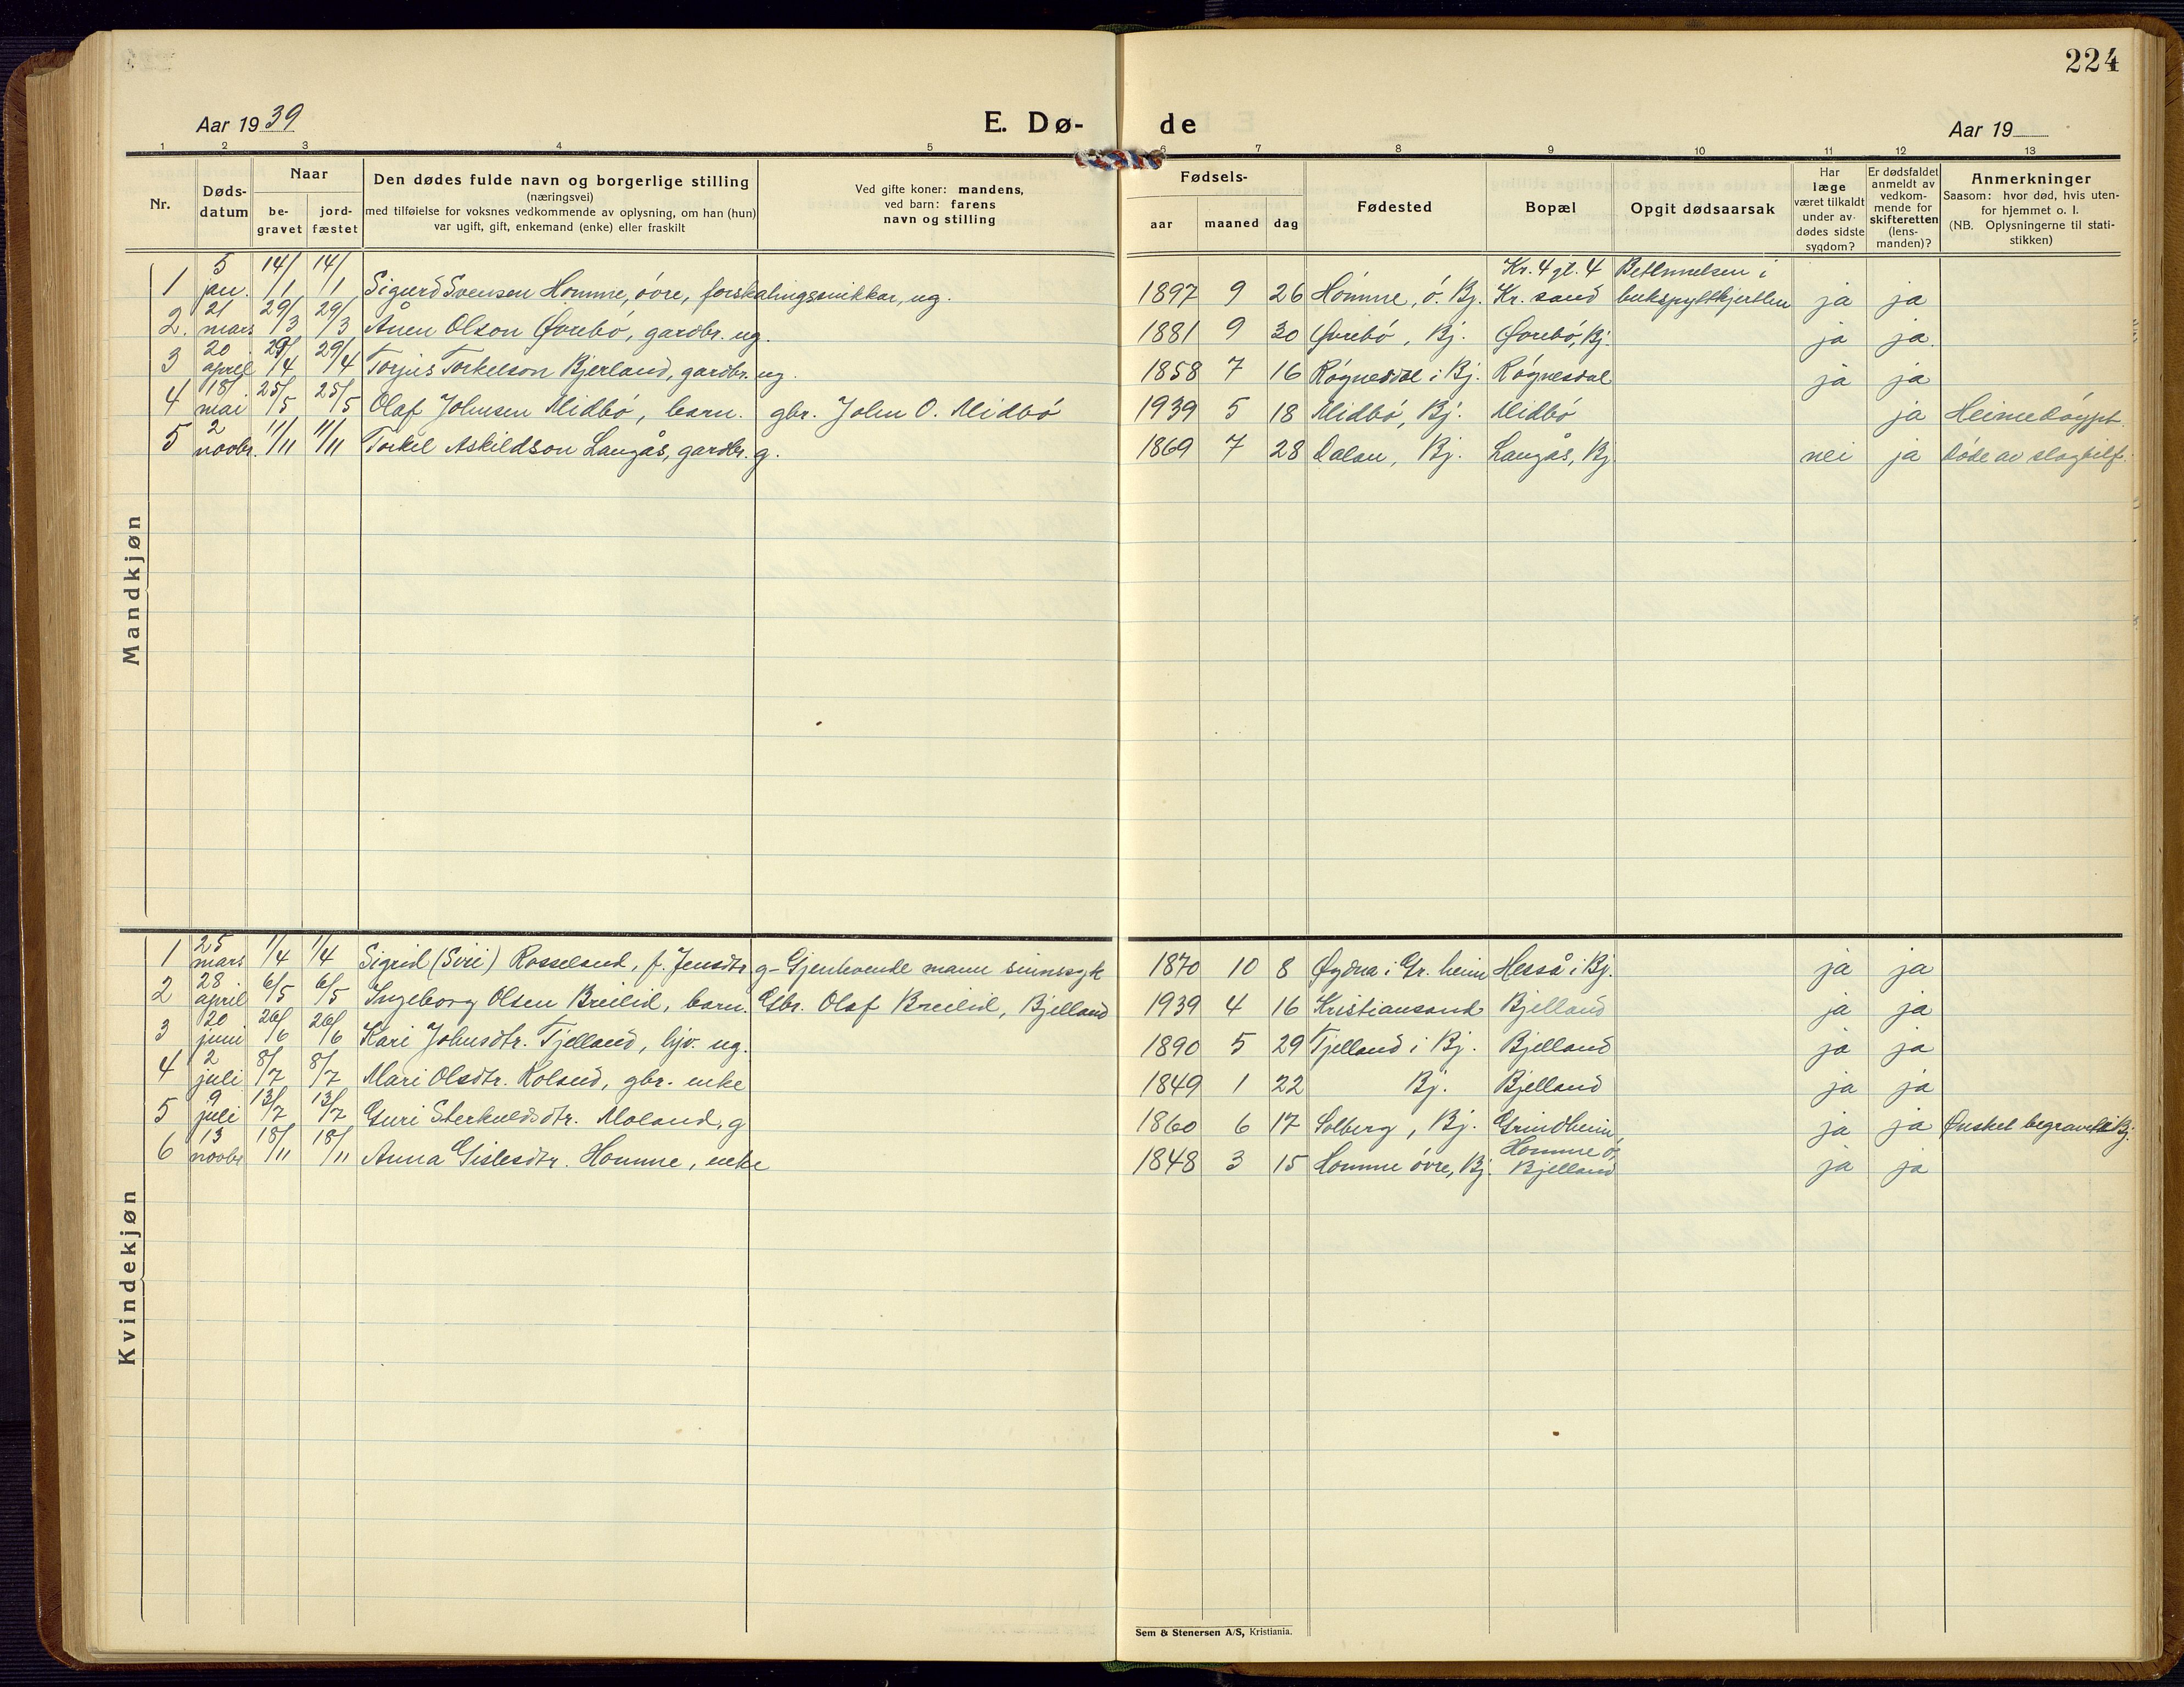 224
Aar 1939
E. Dø-
de
Aar 19
1 2 3 4 5 6 7 8 9 10 11 12 13
Nr.
Døds-
datum
Naar
be-
gravet
jord-
fæstet
Den dødes fulde navn og borgerlige stilling
(næringsvei)
med tilføielse for voksnes vedkommende av oplysning, om han (hun)
var ugift, gift, enkemand (enke) eller fraskilt
Ved gifte koner: mandens,
ved barn: farens
navn og stilling
Fødsels-
aar maaned dag
Fødested
Bopæl
Opgit dødsaarsak
Har
læge
været tilkaldt
under av-
dødes sidste
sygdom?
Er dødsfaldet
anmeldt av
vedkom-
mende for
skifteretten
(lens-
manden)?
Anmerkninger
Saasom: hvor død, hvis uten-
for hjemmet o. l.
(NB. Oplysningerne til stati-
stikken)
Mandkjøn
1 5 jan. 14/1 14/1 Sigurd Svensen Homme, övre, forskalingssnikkar, ug. 1897 9 26 Homme, ö. Bj. Kr. 4 gt. 4 Kr. sand Betennelsen i bukspyttkjertlen ja ja
2. 21 mars 29/3 29/3 Ånen Olson Øvrebö, gardbr. ug. 1881 9 30 Øvrebö, Bj. Øvrebö, Bj. ja ja.
3 20 april 29/4 29/4 Torjus Torkelson Bjerland, gardbr. ug. 1858 7 16 Rögnesdal i Bj. Rögnesdal ja ja
4 18 mai 25/5 25/5 Olaf Johnsen Midbö, barn. gbr. John O. Midbö 1939 5 18 Midbö, Bj. Midbö ja Heimedöypt.
5 2 novbr. 11/11 11/11 Torkel Askildson Langås, gardbr. g. 1869 7 28 Dalan, Bj. Langås, Bj. nei ja döde av slagtilf.
Kvindekjøn
1 25 mars 1/4 1/4 Sigrid (Siri) Rosseland, f. Jensdtr g- Gjenlevende mann sinnssyk 1870 10 8 Øydna i Gr. heim Hesså i Bj. ja ja
2 28 april 6/5 6/5 Ingeborg Olsen Breilid, barn. Gbr. Olaf Breilid, Bjelland 1939 4 16 Kristiansand Bjelland ja ja
3 20 juni 26/6 26/6 Kari Johnsdtr. Tjelland, hjv. ug. 1890 5 29 Tjelland i Bj. Bjelland ja ja
4 2 juli 8/7 8/7 Mari Olsdtr. Roland, gbr. enke 1849 1 22 Bj. Bjelland ja ja
5 9 juli 13/7 13/7 Guri Sterkuldsdtr. Moland, g 1860 6 17 Solberg, Bj. Grindheim ja ja Ønsket begravet i Bj.
6 13 novbr 18/11 18/11 Anna Gislesdtr. Homme, enke 1848 3 15 Homme övre, Bj. Homme ö, Bjelland ja ja
Sem & Stenersen A/S, Kristiania.